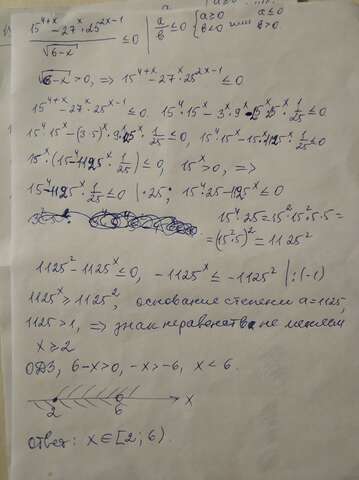 a≥0 a≤0
15^{4+x} - 27^x · 25^{2x-1} / √6-x ≤ 0 | a/b ≤ 0 { b<0 или b>0
√6-x > 0, ⇒ 15^{4+x} - 27^x · 25^{2x-1} ≤ 0
15^{4+x} - 27^x · 25^{x-1} ≤ 0. 15^4 · 15^x - 3^x · 9^x · 25^x · 1/25 ≤ 0
15^4 · 15^x - (3·5)^x · 9^x · 25^x · 1/25 ≤ 0, 15^4 15^x - 15^x · 1125^x · 1/25 ≤ 0
15^x · (15^4 - 1125^x · 1/25) ≤ 0, 15^x > 0, ⇒
15^4 - 1125^x · 1/25 ≤ 0 | · 25; 15^4 25 - 1125^x ≤ 0
15^4 · 25 = 15^2 · 15^2 · 5 · 5 =
= (15^2 · 5)^2 = 1125^2
1125^2 - 1125^x ≤ 0, -1125^x ≤ -1125^2 | : (-1)
1125^x ≥ 1125^2, основание степени a = 1125,
1125 > 1, ⇒ знак неравенства не меняем
x ≥ 2
ОДЗ, 6-x>0, -x>-6, x < 6.
2 6 x
ответ: x ∈ [2; 6).